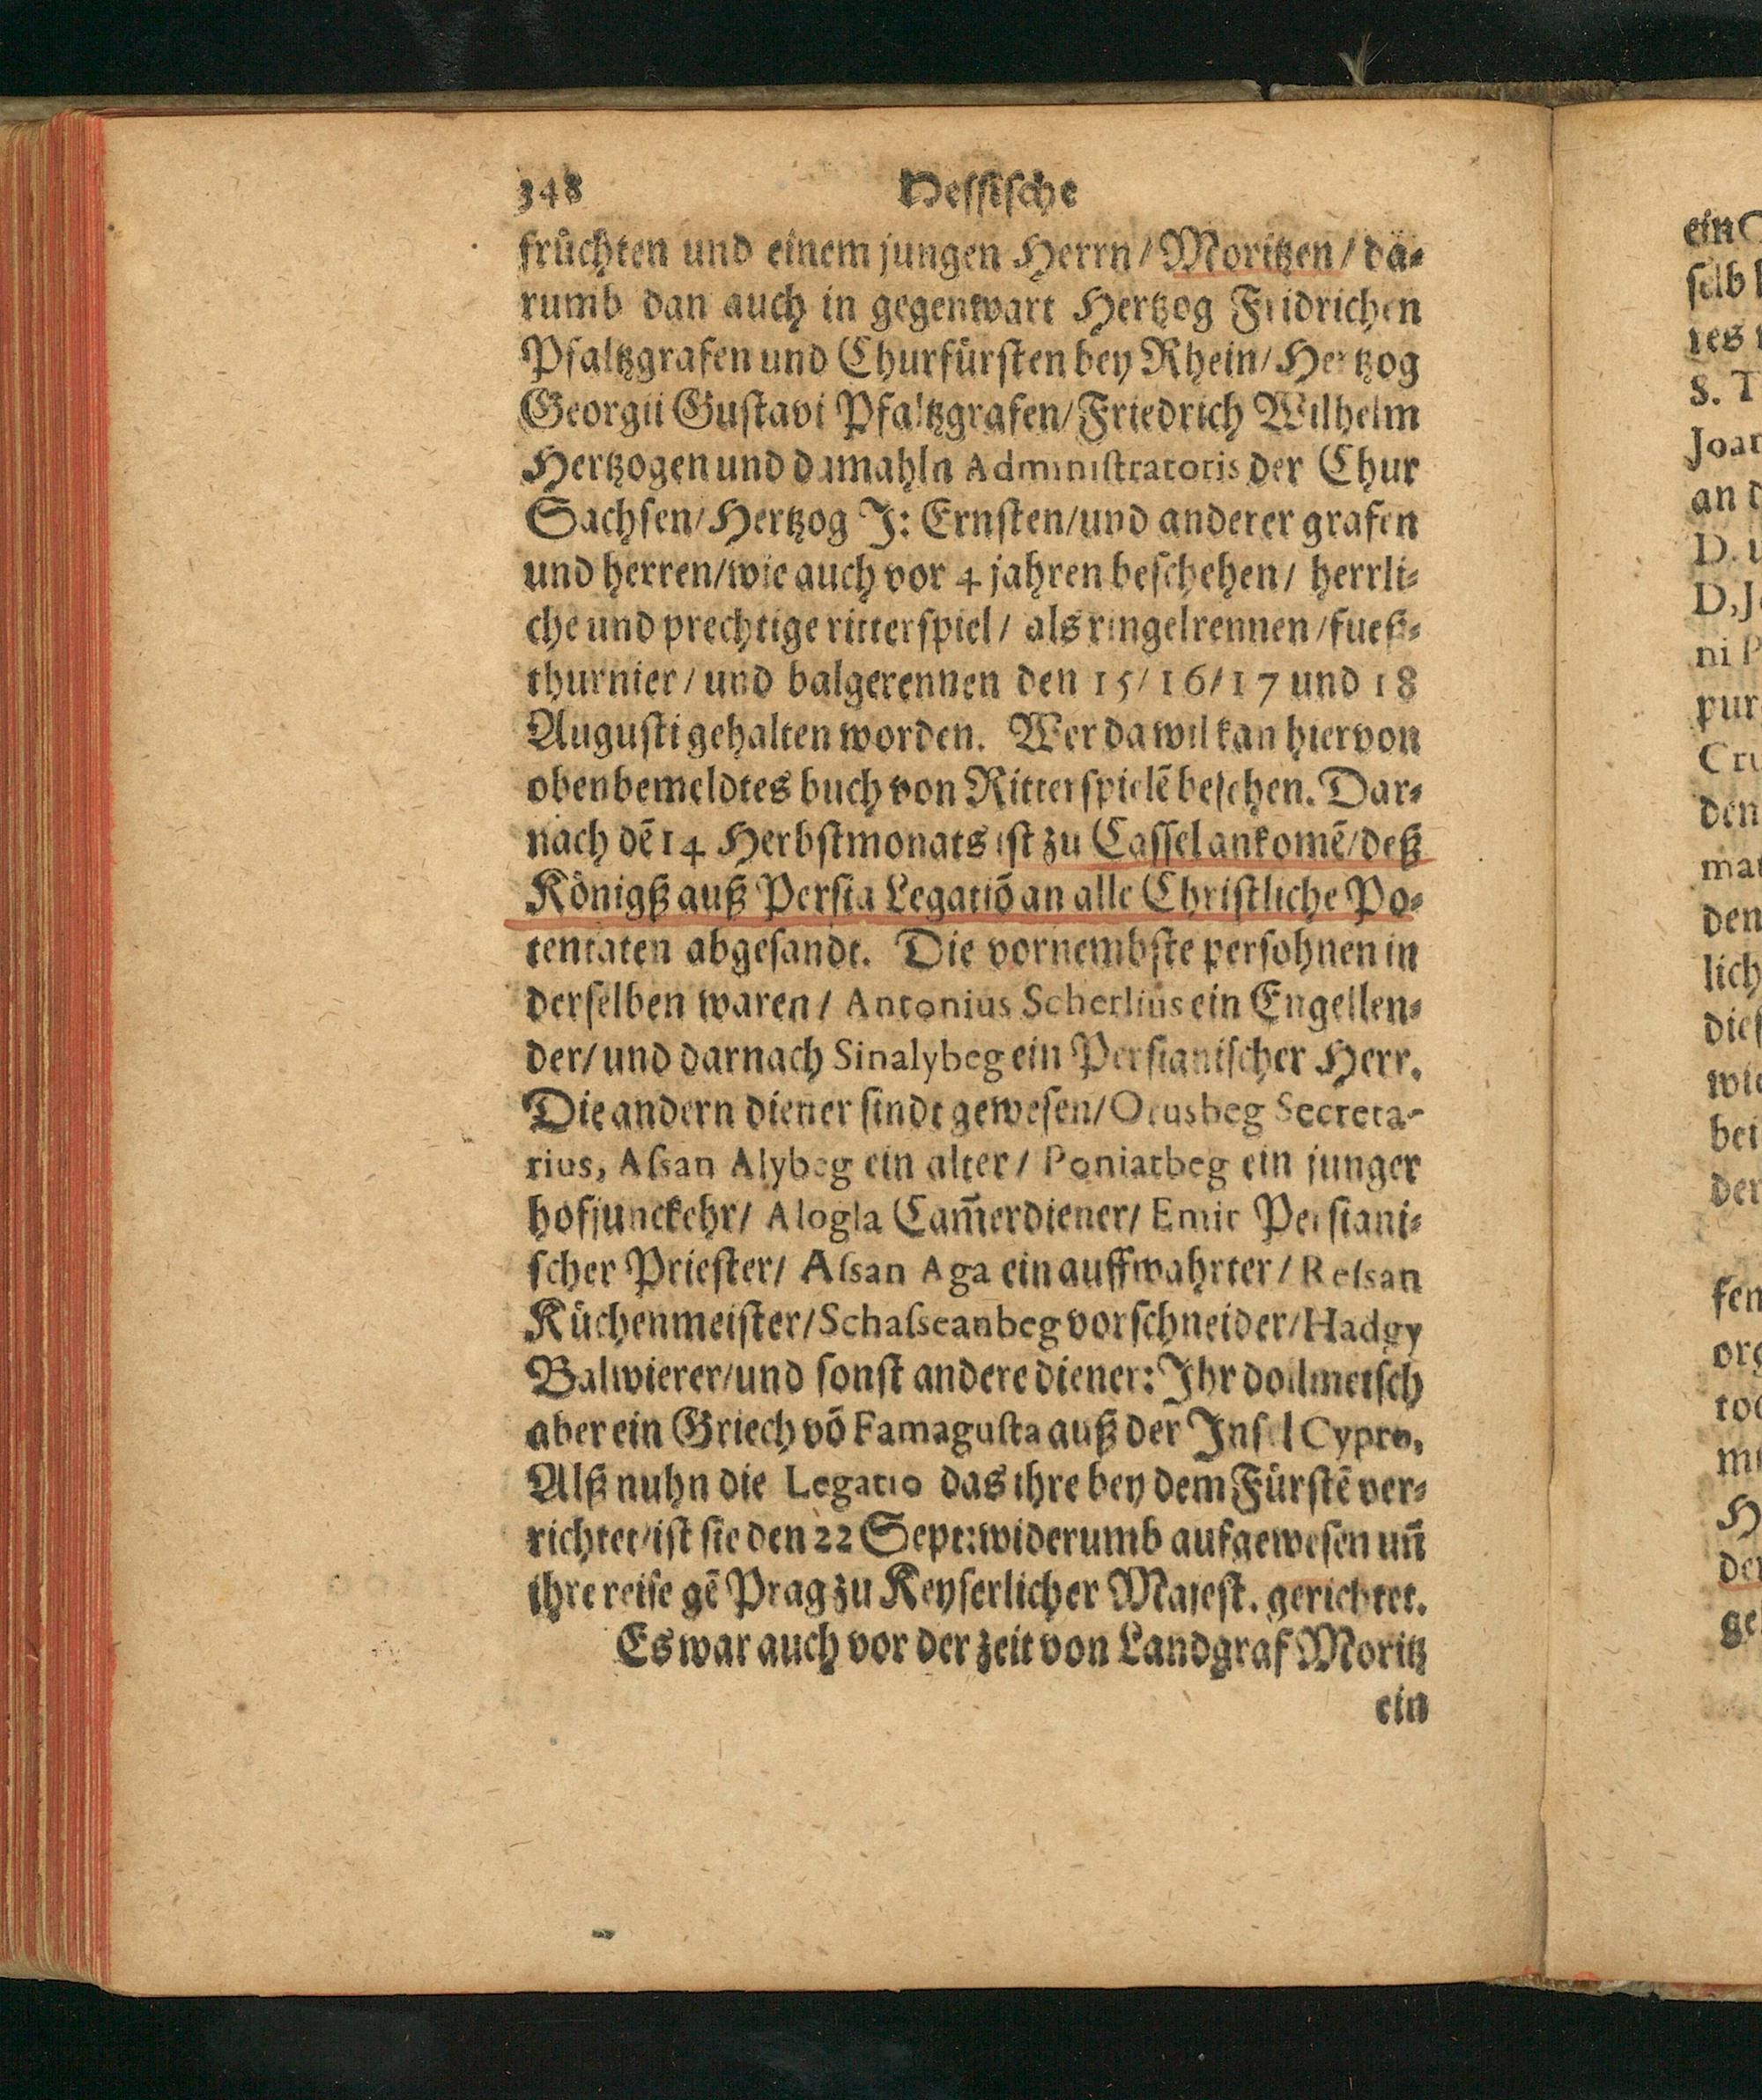 348 Hessische
früchten und einem jungen Herrn/Moritzen/da-
rumb dan auch in gegenwart Hertzog Fridrichen
Pfaltzgrafen und Churfürsten bey Rhein/Hertzog
Georgii Gustavi Pfaltzgrafen/Friedrich Wilhelm
Hertzogen und damahln Administratoris der Chur
Sachsen/Hertzog J: Ernsten/und anderer grafen
und herren/wie auch vor 4 jahren beschehen/ herrli-
che und prechtige ritterspiel/ als ringelrennen/fueß-
thurnier/und balgerennen den 15/16/17 und 18
Augusti gehalten worden. Wer da wil kan hiervon
obenbemeldtes buch von Ritterspielē besehen. Dar-
nach dē 14 Herbstmonats ist zu Cassel ankomē/deß
Königß auß Persia Legatiō an alle Christliche Po-
tentaten abgesandt. Die vornembste persohnen in
derselben waren/ Antonius Scherlius ein Engellen-
der/und darnach Sinalybeg ein Persianischer Herr.
Die andern diener sindt gewesen/Orusbeg Secreta-
rius, Aſsan Alybeg ein alter/ Poniatbeg ein junger
hofjunckehr/ Alogla Cam̄erdiener/ Emir Persiani-
scher Priester/ Aſsan Aga ein auffwahrter/ Reſsan
Küchenmeister/Schaſseanbeg vorschneider/Hadgy
Balwierer/und sonst andere diener: Ihr dollmetsch
aber ein Griech vō Famagusta auß der Insel Cypro,
Alß nuhn die Legatio das ihre bey dem Fürstē ver-
richtet/ist sie den 22 Sept: widerumb aufgewesen un̄
ihre reise gē Prag zu Keyserlicher Majest. gerichtet.
Es war auch vor der zeit von Landgraf Moritz
ein
ein
selb
res
8. T
Joan
an d
D.
D,J
ni P
pur
Cru
den
mat
den
lich
dies
wie
bei
der
sen
org
tod
mi
H
der
ge